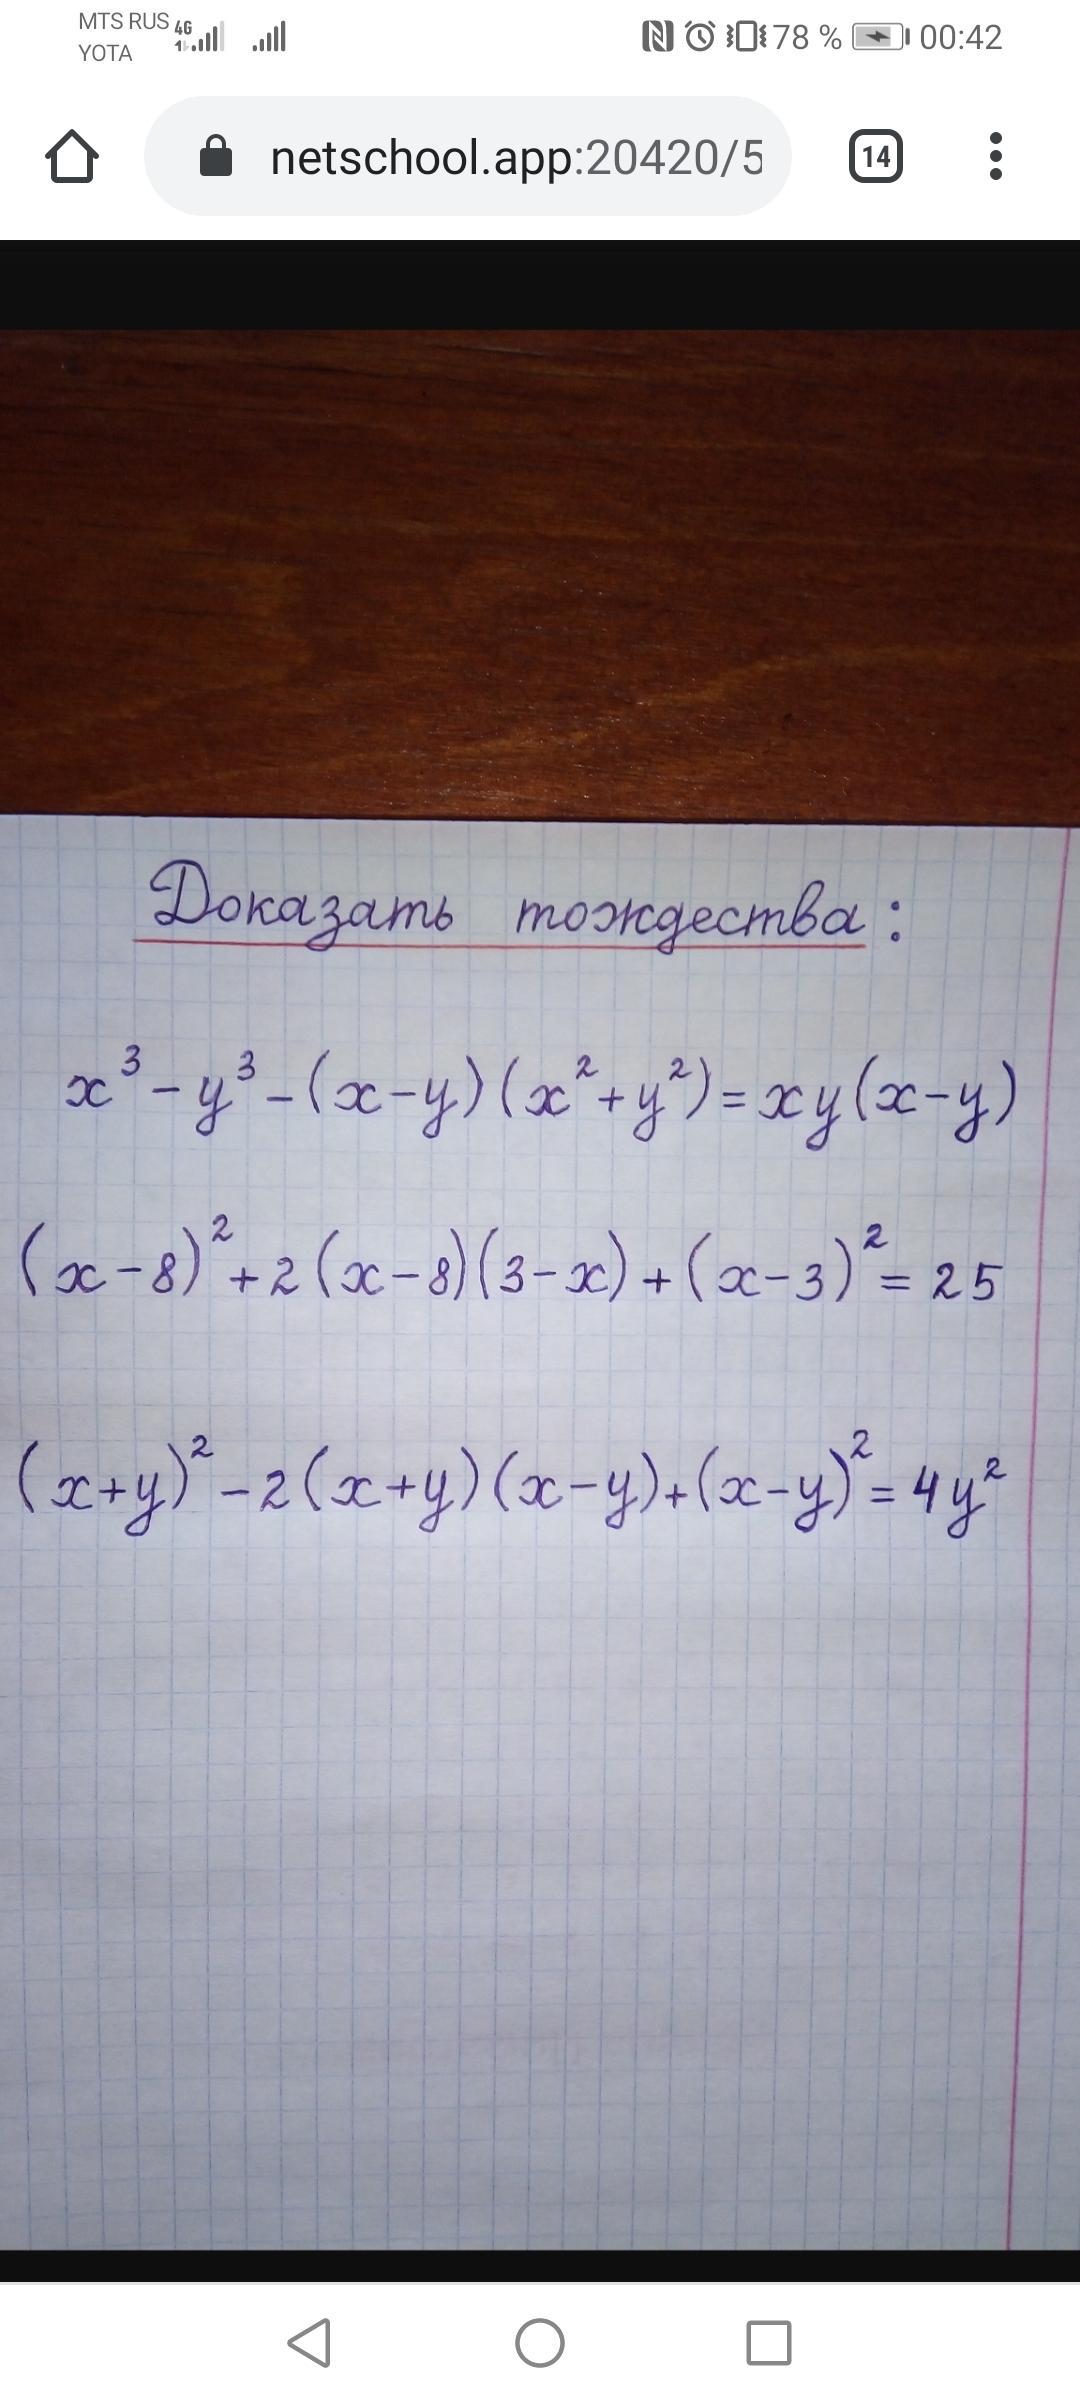 MTS RUS 4G
YOTA
78 % 00:42
netschool.app:20420/5
14
Доказать тождества:
x³-y³-(x-y)(x²+y²)=xy(x-y)
(x-8)²+2(x-8)(3-x)+(x-3)²=25
(x+y)²-2(x+y)(x-y)+(x-y)²=4y²